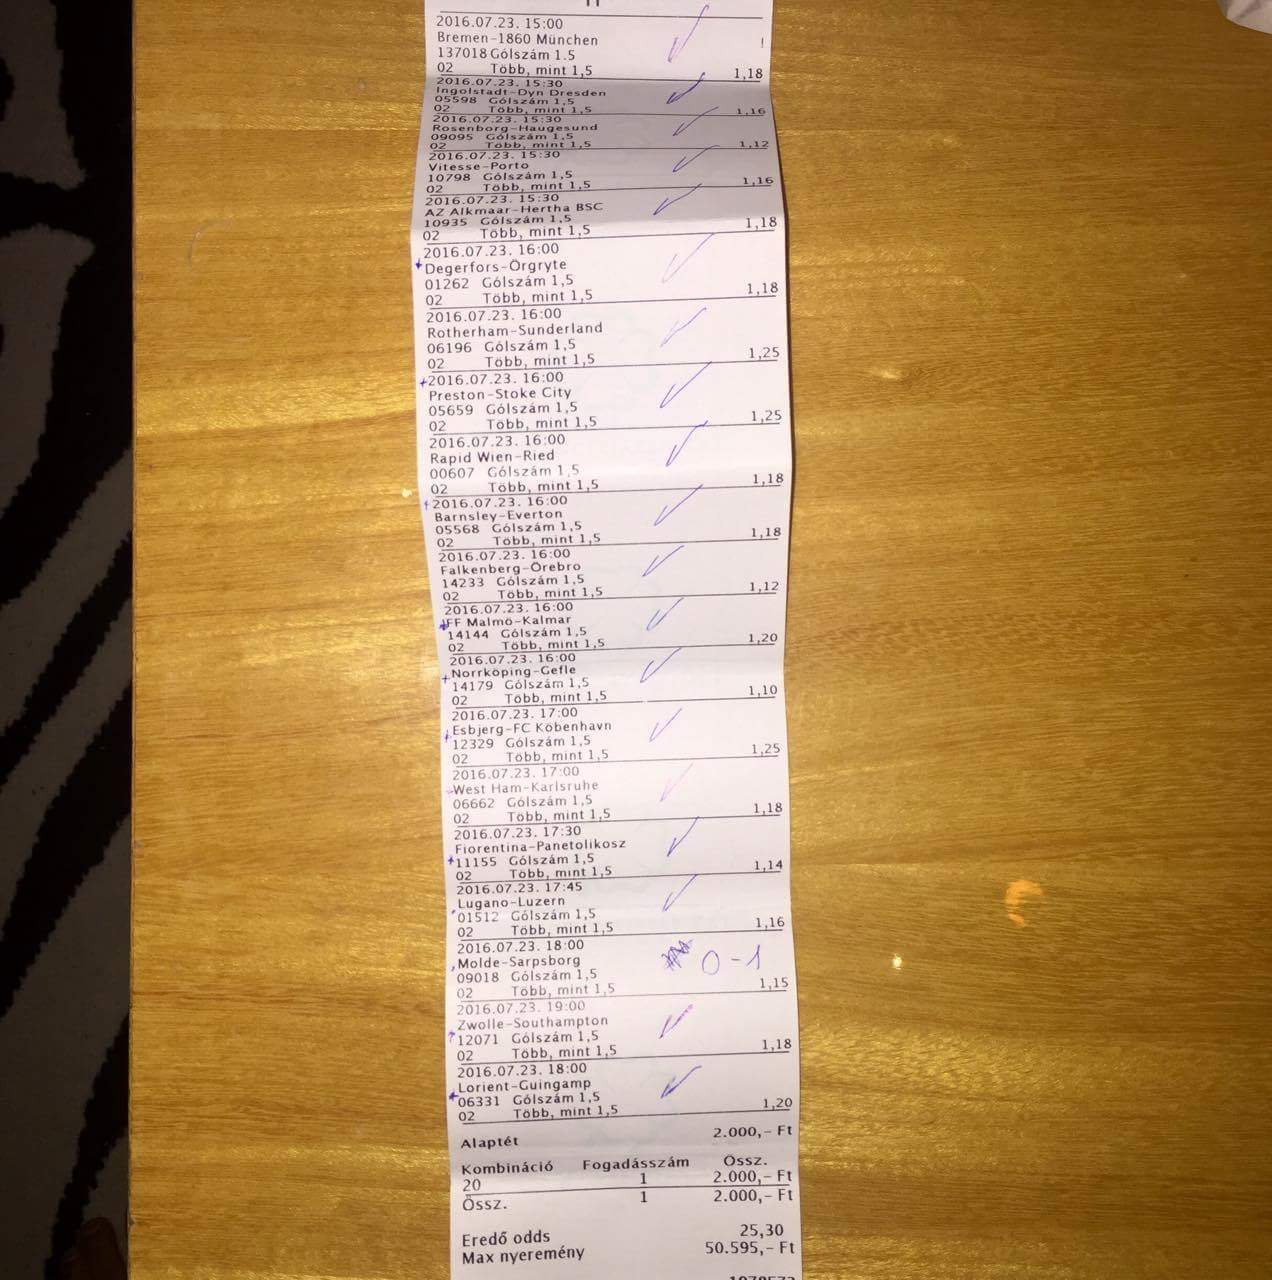 2016.07.23. 15:00
Bremen-1860 München !
137018 Gólszám 1.5
02 Több, mint 1,5 1,18
2016.07.23. 15:30
Ingolstadt-Dyn Dresden
05598 Gólszám 1,5
02 Több, mint 1,5 1,16
2016.07.23. 15:30
Rosenborg-Haugesund
09095 Gólszám 1,5
02 Több, mint 1,5 1,12
2016.07.23. 15:30
Vitesse-Porto
10798 Gólszám 1,5
02 Több, mint 1,5 1,16
2016.07.23. 15:30
AZ Alkmaar-Hertha BSC
10935 Gólszám 1,5
02 Több, mint 1,5 1,18
2016.07.23. 16:00
Degerfors-Örgryte
01262 Gólszám 1,5
02 Több, mint 1,5 1,18
2016.07.23. 16:00
Rotherham-Sunderland
06196 Gólszám 1,5
02 Több, mint 1,5 1,25
2016.07.23. 16:00
Preston-Stoke City
05659 Gólszám 1,5
02 Több, mint 1,5 1,25
2016.07.23. 16:00
Rapid Wien-Ried
00607 Gólszám 1,5
02 Több, mint 1,5 1,18
2016.07.23. 16:00
Barnsley-Everton
05568 Gólszám 1,5
02 Több, mint 1,5 1,18
2016.07.23. 16:00
Falkenberg-Örebro
14233 Gólszám 1,5
02 Több, mint 1,5 1,12
2016.07.23. 16:00
IFF Malmö-Kalmar
14144 Gólszám 1,5
02 Több, mint 1,5 1,20
2016.07.23. 16:00
Norrköping-Gefle
14179 Gólszám 1,5
02 Több, mint 1,5 1,10
2016.07.23. 17:00
Esbjerg-FC Köbenhavn
12329 Gólszám 1,5
02 Több, mint 1,5 1,25
2016.07.23. 17:00
West Ham-Karlsruhe
06662 Gólszám 1,5
02 Több, mint 1,5 1,18
2016.07.23. 17:30
Fiorentina-Panetolikosz
11155 Gólszám 1,5
02 Több, mint 1,5 1,14
2016.07.23. 17:45
Lugano-Luzern
01512 Gólszám 1,5
02 Több, mint 1,5 1,16
2016.07.23. 18:00
Molde-Sarpsborg 0-1
09018 Gólszám 1,5
02 Több, mint 1,5 1,15
2016.07.23. 19:00
Zwolle-Southampton
12071 Gólszám 1,5
02 Több, mint 1,5 1,18
2016.07.23. 18:00
Lorient-Guingamp
06331 Gólszám 1,5
02 Több, mint 1,5 1,20
Alaptét 2.000,- Ft
Kombináció Fogadásszám Össz.
20 1 2.000,- Ft
Össz. 1 2.000,- Ft
Eredő odds 25,30
Max nyeremény 50.595,- Ft